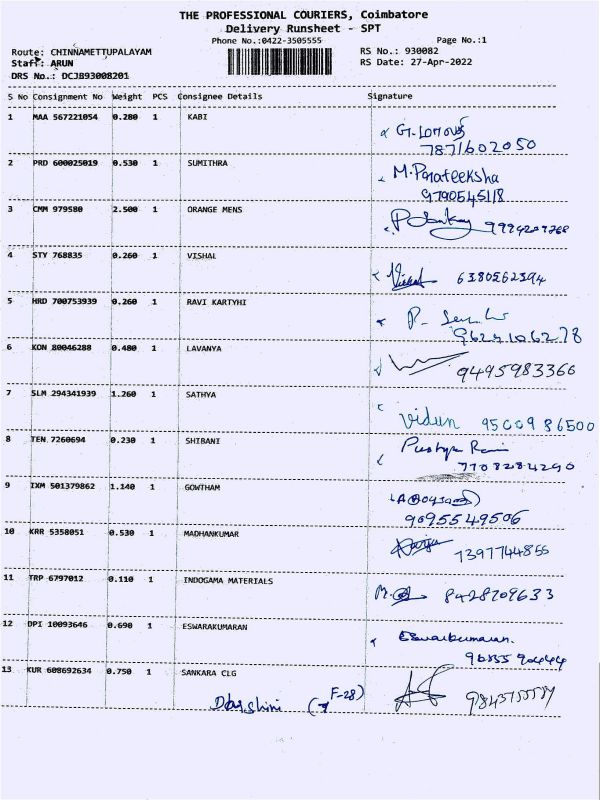 THE PROFESSIONAL COURIERS, Coimbatore
Delivery Runsheet - SPT
Phone No.:0422-3505555 Page No.:1
Route: CHINNAMETTUPALAYAM RS No.: 930082
Staff: ARUN RS Date: 27-Apr-2022
DRS No.: DCJB93008201
S No Consignment No Weight PCS Consignee Details Signature
1 MAA 567221054 0.280 1 KABI
7871602050
2 PRD 600025019 0.530 1 SUMITHRA M.Prateeksha
9790545118
3 CMM 979580 2.500 1 ORANGE MENS
4 STY 768835 0.260 1 VISHAL Vishal 6380562394
5 HRD 700753939 0.260 1 RAVI KARTYHI
6 KON 80046288 0.480 1 LAVANYA 9495983366
7 SLM 294341939 1.260 1 SATHYA
vidun 9500986500
8 TEN 7260694 0.230 1 SHIBANI
7708284290
9 IXM 501379862 1.140 1 GOWTHAM
9095549506
10 KRR 5358051 0.530 1 MADHANKUMAR 7397744855
11 TRP 6797012 0.110 1 INDOGAMA MATERIALS 8428709633
12 DPI 10093646 0.690 1 ESWARAKUMARAN Eswarkumaran.
13 KUR 608692634 0.750 1 SANKARA CLG
Darshini F-28)